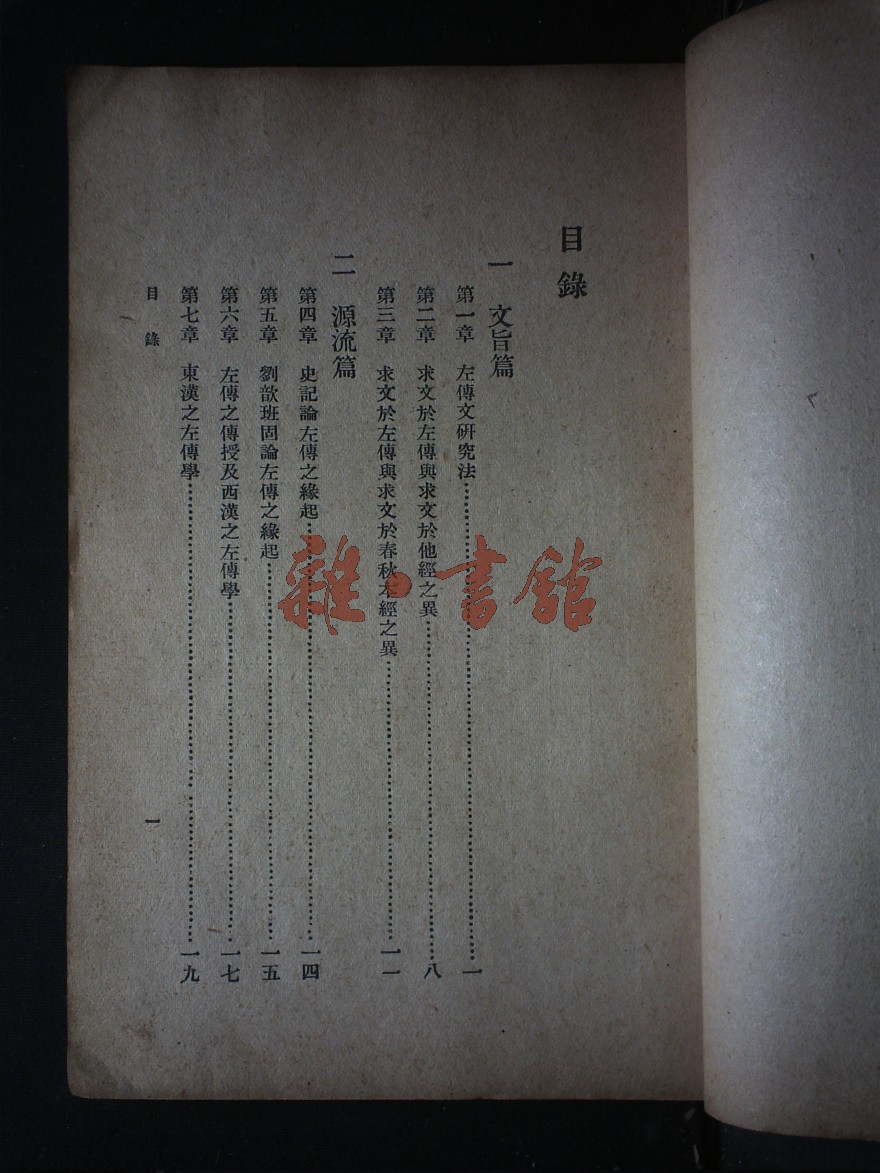 目錄
一 文旨篇
第一章 左傳文研究法……一
第二章 求文於左傳與求文於他經之異……八
第三章 求文於左傳與求文於春秋本經之異……一一
二 源流篇
第四章 史記論左傳之緣起……一四
第五章 劉歆班固論左傳之緣起……一五
第六章 左傳之傳授及西漢之左傳學……一七
第七章 東漢之左傳學……一九
目錄 一
雜·書館